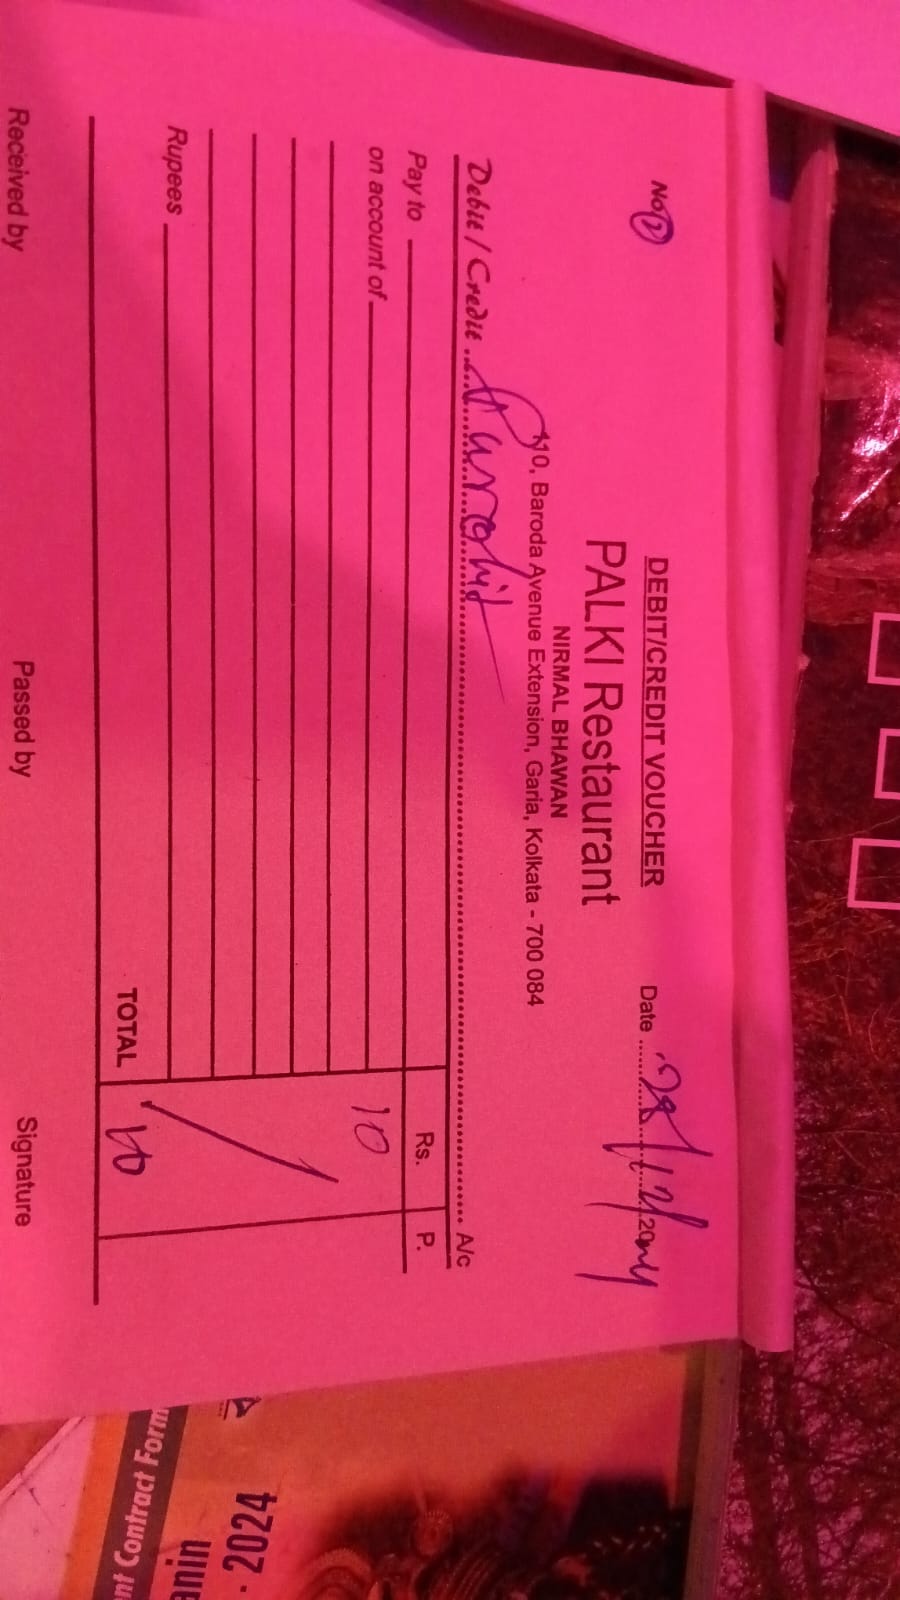 No 2
DEBIT/CREDIT VOUCHER
Date ............ 20
PALKI Restaurant
NIRMAL BHAWAN
110, Baroda Avenue Extension, Garia, Kolkata - 700 084
Debit / Credit Purohit A/c
Pay to
Rs. P.
on account of
10
Rupees
TOTAL 10
Received by Passed by Signature
nt Contract Form
anin
- 2024